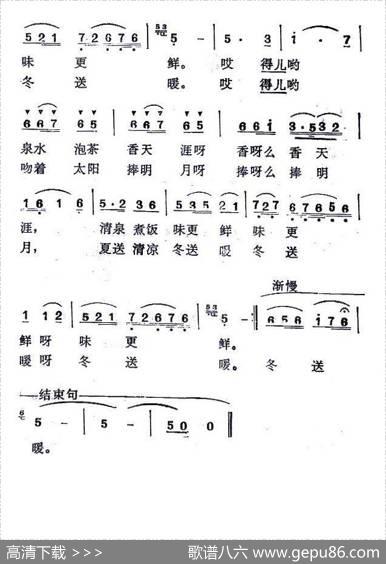 521 72676 53 5 - | 5· 3 | i · 7
味 更 鲜。哎 得儿哟
冬 送 暖。哎 得儿哟
667 65 667 65 | 66i 3·532
泉水 泡茶 香天 涯呀 香呀么 香 天
吻着 太阳 捧明 月呀 捧呀么 捧 明
i6i | 5·2 36 | 535 21 | 727 67656
涯， 清泉 煮饭 味更 鲜 味 更
月， 夏送 清凉 冬送 暖 冬 送
渐慢
1 12 | 521 72676 | 53 5 - :‖ 656 i76
鲜 呀 味 更 鲜。
暖 呀 冬 送 暖。 冬 送
结束句
6 5 - | 5 - | 50 0 ‖
暖。
高清下载 >>>
歌谱八六 www.gepu86.com